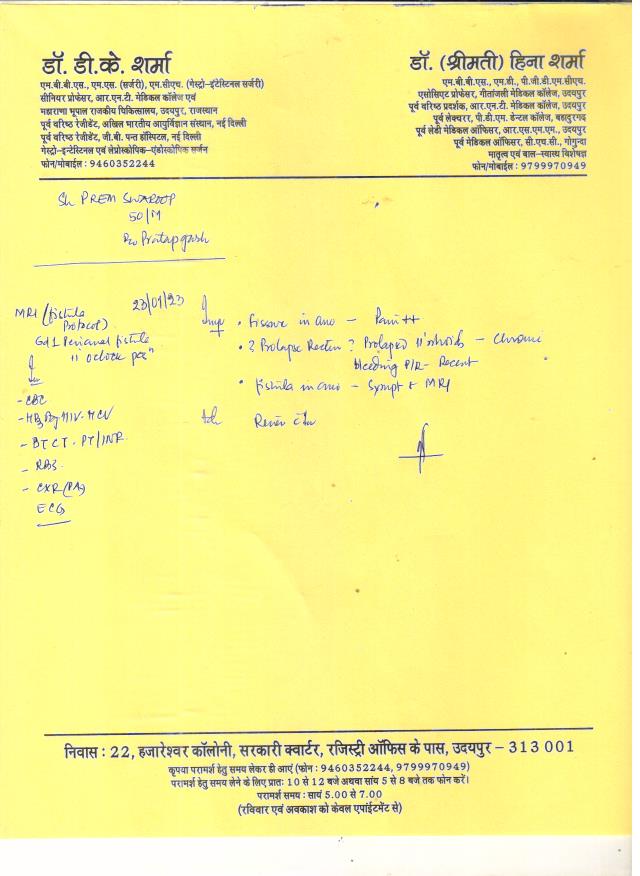 डॉ. डी.के. शर्मा
एम.बी.बी.एस., एम.एस. (सर्जरी), एम.सीएच. (गेस्ट्रो-इंटेस्टिनल सर्जरी)
सीनियर प्रोफेसर, आर.एन.टी. मेडिकल कॉलेज एवं
महाराणा भूपाल राजकीय चिकित्सालय, उदयपुर, राजस्थान
पूर्व वरिष्ठ रेजीडेंट, अखिल भारतीय आयुर्विज्ञान संस्थान, नई दिल्ली
पूर्व वरिष्ठ रेजीडेंट, जी.बी. पन्त हॉस्पिटल, नई दिल्ली
गेस्ट्रो-इन्टेस्टिनल एवं लेप्रोस्कोपिक-एंडोस्कोपिक सर्जन
फोन/मोबाईल : 9460352244
डॉ. (श्रीमती) हिना शर्मा
एम.बी.बी.एस., एम.डी., पी.जी.डी.एम.सीएच.
एसोसिएट प्रोफेसर, गीतांजली मेडिकल कॉलेज, उदयपुर
पूर्व वरिष्ठ प्रदर्शक, आर.एन.टी. मेडिकल कॉलेज, उदयपुर
पूर्व लेक्चरर, पी.डी.एम. डेन्टल कॉलेज, बहादुरगढ़
पूर्व लेडी मेडिकल ऑफिसर, आर.एस.एम.एम., उदयपुर
पूर्व मेडिकल ऑफिसर, सी.एच.सी., गोगुन्दा
मातृत्व एवं बाल-स्वास्थ्य विशेषज्ञ
फोन/मोबाईल : 9799970949
Sh PREM SWAROOP
50/M
R/o Pratapgarh
23/01/23
MRI (fistula
Protocol)
Gd 1 Perianal fistula
11 o'clock posn
Inv
- CBC
- HBsAg HIV. HCV
- BTCT. PT/INR
- RBS.
- CXR (PA)
ECG
Imp • Fissure in ano - Pain ++
• ? Prolapse Rectum ? Prolapsed - Chronic
bleeding P/R - Recent
• fistula in ano - Sympt + MRI
Adv Review
निवास : 22, हजारेश्वर कॉलोनी, सरकारी क्वार्टर, रजिस्ट्री ऑफिस के पास, उदयपुर - 313 001
कृपया परामर्श हेतु समय लेकर ही आएं (फोन : 9460352244, 9799970949)
परामर्श हेतु समय लेने के लिए प्रातः 10 से 12 बजे अथवा सांय 5 से 8 बजे तक फोन करें।
परामर्श समय : सायं 5.00 से 7.00
(रविवार एवं अवकाश को केवल एपांईटमेंट से)